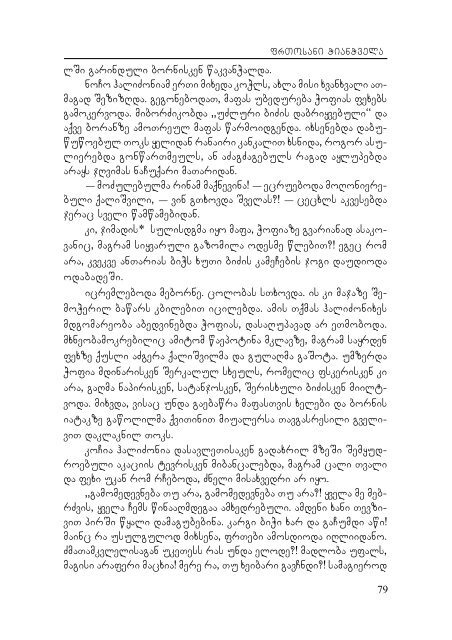 ფრთოსანი ჭიანჭველა
ლში გარინდული ბორნისკენ წაკვანჭალდა.
ნოჩო ჰალიძონიამ ერთი მიხედა კოჭლს, ახლა მისი ხვანხვალი ათ-
მაგად შეზიზღდა. გეგონებოდათ, მაფას უბედურება ჭოფიას ფეხებს
გამოკერვოდა. მიბორძიკობდა „უძლური ბიძის დაბრიყვებული“ და
აქვე ბორანზე ამოთრეულ მაფას წარმოიდგენდა. იხსენებდა დაბუ-
წუწოებულ თოკს ყელიდან რანაირი კანკალით ხსნიდა, როგორ ასუ-
ლიერებდა გონწართმეულს, ან აძაგძაგებულს რაგად აყლუპებდა
არაყს ჯღვიმას ნაჩუქარი მათარიდან.
— მოძულებულმა რინამ მაქნევინა! — ეცრუებოდა მოღონიერე-
ბული ქალიშვილი, — ვინ გთხოვდა შველას?! — ცეცხლს აკვესებდა
ჯერაც სველი წამწამებიდან.
კი, ჯიმადის* სულისდგმა იყო მაფა, ჭოფიაზე გვარიანად ასაკო-
ვანიც, მაგრამ სიყვარული გაზომილა ოდესმე წლებით?! ეგეც რომ
არა, კვეკვე ანთარიას ბიჭს ხუთი ბიძის კამეჩების ჯოგი დაუდიოდა
ოდაბადეში.
იცრემლებოდა მებორნე. ცოლობას სთხოვდა. ის კი მაჯაზე შე-
მოჭერილ ბაწარს კბილებით იცილებდა. ამის თქმას ჰალიძონიხეს
მდგომარეობა აბედვინებდა ჭოფიას, დასაღუპავად არ ეთმობოდა.
მხნეობამოკრებილიც ამიტომ წაეპოტინა მკლავზე, მაგრამ საყრდენ
ფეხზე ქუსლი აძგერა ქალიშვილმა და გულაღმა გაშოტა. უმზერდა
ჭოფია მდინარისკენ შერკალულ სხეულს, რომელიც ფსკერისკენ კი
არა, გაღმა ნაპირისკენ, სატანჯოსკენ, შერისხული ბიძისკენ მიილტ-
ვოდა. მიხვდა, ვისაც უნდა გაებაწრა მაფასთვის ხელები და ბორნის
იატაკზე გაწოლილმა ქვითინით მიუალერსა თავგასრესილი გველი-
ვით დაკლაკნილ თოკს.
კოჩია ჰალიძონია დასავლეთისაკენ გადახრილ მზეში შემყუდ-
როებული აკაციის ტევრისკენ მიბანცალებდა, მაგრამ ცალი თვალი
და ფეხი უკან რომ რჩებოდა, ძნელი მისახვედრი არ იყო.
„გამომედევნება თუ არა, გამომედევნება თუ არა?! ყველა მე მებ-
რძვის, ყველა ჩემს წინააღმდეგაა ამხედრებული. ამდენი ხანი თევზი-
ვით პირში წყალი დამაგუბებინა. კარგი ბიჭი ხარ და გაჩუმდი აწი!
მაინც რა უსულგულოდ მიხსენა, ფრთები ამოსდიოდა იღლიიდანო.
ძმათამკვლელისაგან უკეთესს რას უნდა ელოდე?! მადლობა უფალს,
მაგისი არაფერი მაცხია! მერე რა, თუ ხეიბარი გავჩნდი?! სამაგიეროდ
79